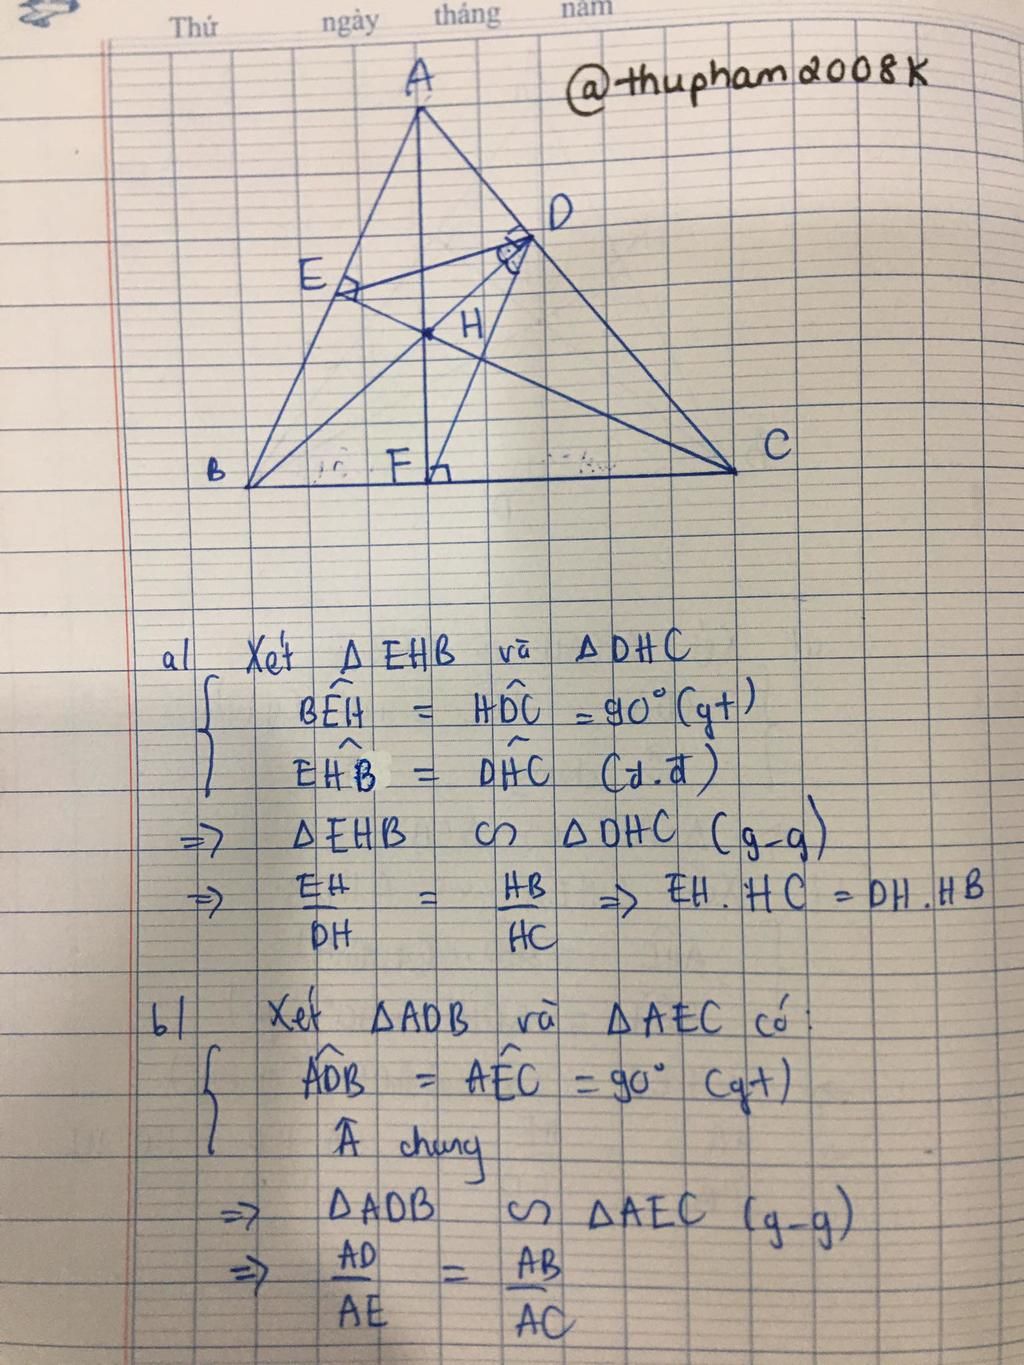 Thứ ngày tháng năm
@thupham2008k
A
D
E
H
B
F
C
a/ Xét Δ EHB và Δ DHC
BÊH = HD̂C = 90° (gt)
EĤB = DĤC (đ.đ)
=> Δ EHB ∽ Δ DHC (g-g)
=> EH/DH = HB/HC => EH . HC = DH . HB
b/ Xét ΔADB và ΔAEC có:
AD̂B = AÊC = 90° (gt)
Â chung
=> ΔADB ∽ ΔAEC (g-g)
=> AD/AE = AB/AC